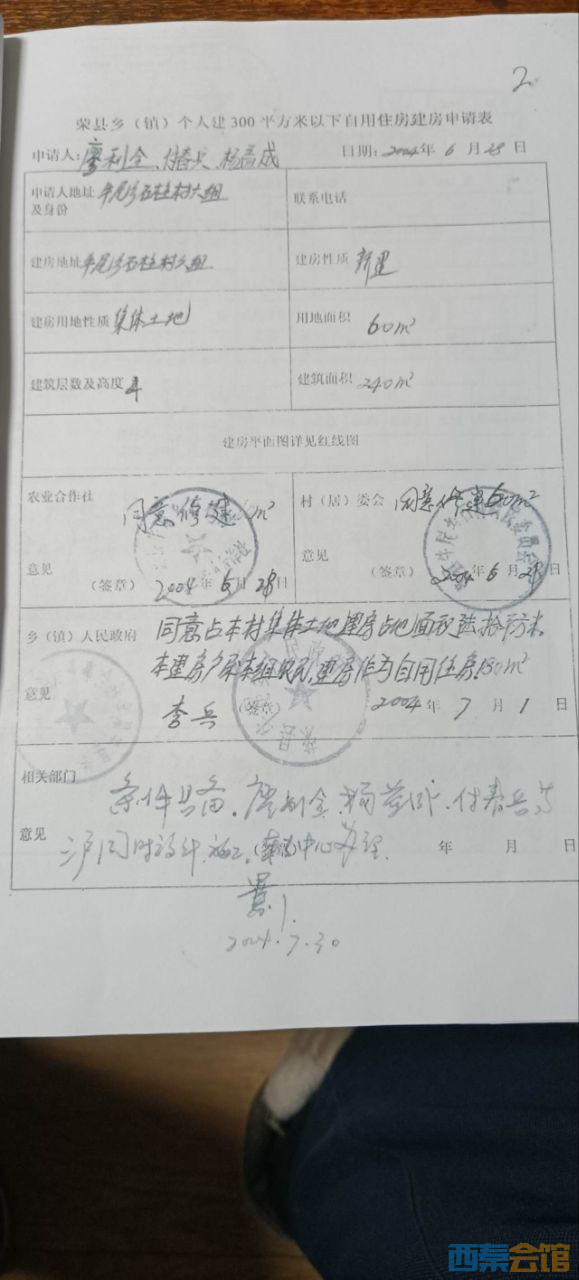 2
荣县乡（镇）个人建300平方米以下自用住房建房申请表
申请人：廖利全、付春兵、杨
日期：2004年6月28日
申请人地址及身份 石柱村六组
联系电话
建房地址 石柱村六组
建房性质 新建
建房用地性质 集体土地
用地面积 60m²
建筑层数及高度 4
建筑面积 240m²
建房平面图详见红线图
农业合作社 同意修建 m²
意见
（签章） 2004年6月28日
村（居）委会 同意修建60m²
意见
（签章） 2004年6月28日
乡（镇）人民政府 同意占本村集体土地建房占地面积陆拾平方米。
本建房户系本组农民，建房作为自用住房180m²
意见 李兵 （签章） 2004年7月1日
相关部门 条件具备，廖利全、杨 、付春兵等
意见 三户同时设计、施工， 中心办理. 年 月 日
2004.7.30
西秦会馆